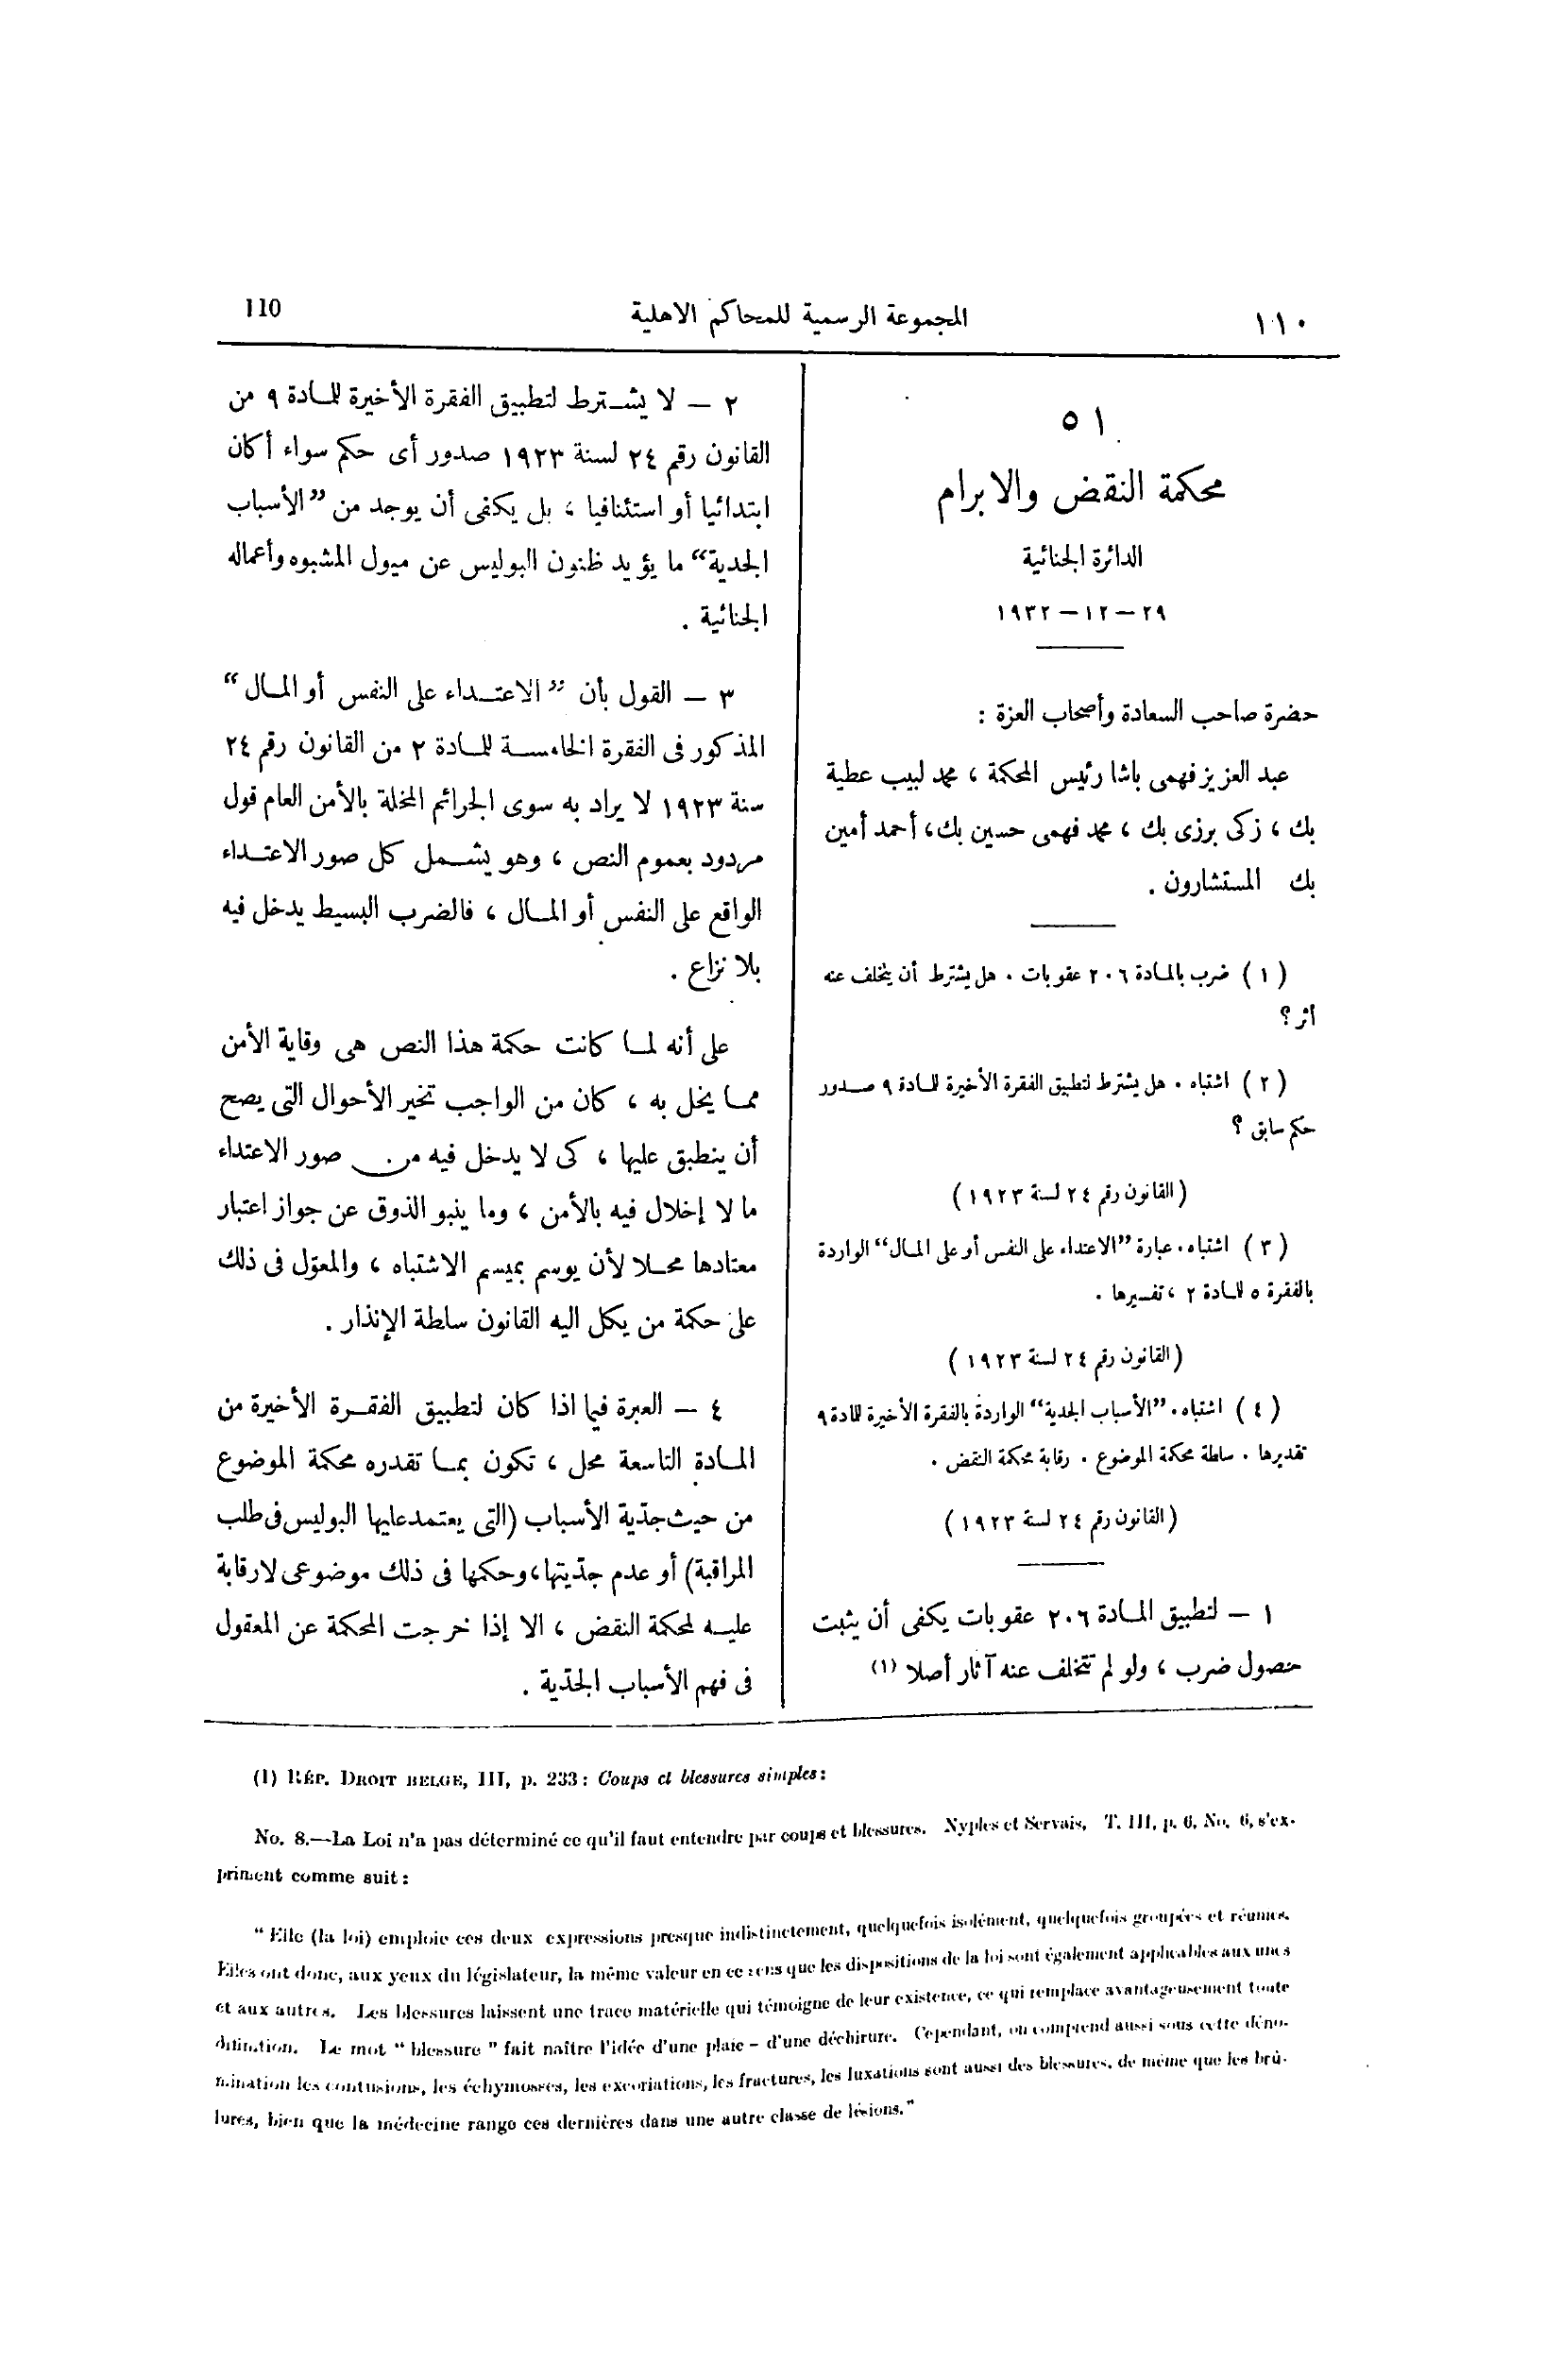 110
المجموعة الرسمية للمحاكم الاهلية
١١٠
٥١
محكمة النقض والابرام
الدائرة الجنائية
٢٩ – ١٢ – ١٩٣٢
حضرة صاحب السعادة وأصحاب العزة :
عبد العزيز فهمى باشا رئيس المحكمة ، محمد لبيب عطية
بك ، زكى برزى بك ، محمد فهمى حسين بك، أحمد أمين
بك المستشارون .
(١) ضرب بالمادة ٢٠٦ عقوبات . هل يشترط أن يتخلف عنه
أثر؟
(٢) اشتباه . هل يشترط لتطبيق الفقرة الأخيرة للمادة ٩ صدور
حكم سابق ؟
(القانون رقم ٢٤ لسنة ١٩٢٣)
(٣) اشتباه. عبارة ”الاعتداء على النفس أو على المال“ الواردة
بالفقرة ٥ للمادة ٢ ، تفسيرها .
(القانون رقم ٢٤ لسنة ١٩٢٣)
(٤) اشتباه. ”الأسباب الجدية“ الواردة بالفقرة الأخيرة للمادة ٩
تقديرها . سلطة محكمة الموضوع . رقابة محكمة النقض .
(القانون رقم ٢٤ لسنة ١٩٢٣)
١ – لتطبيق المادة ٢٠٦ عقوبات يكفى أن يثبت
حصول ضرب ، ولو لم تتخلف عنه آثار أصلا (١)
٢ – لا يشترط لتطبيق الفقرة الأخيرة للمادة ٩ من
القانون رقم ٢٤ لسنة ١٩٢٣ صدور أى حكم سواء أكان
ابتدائيا أو استئنافيا ، بل يكفى أن يوجد من ”الأسباب
الجدية“ ما يؤيد ظنون البوليس عن ميول المشبوه وأعماله
الجنائية .
٣ – القول بأن ”الاعتداء على النفس أو المال“
المذكور فى الفقرة الخامسة للمادة ٢ من القانون رقم ٢٤
سنة ١٩٢٣ لا يراد به سوى الجرائم المخلة بالأمن العام قول
مردود بعموم النص ، وهو يشمل كل صور الاعتداء
الواقع على النفس أو المال ، فالضرب البسيط يدخل فيه
بلا نزاع .
على أنه لما كانت حكمة هذا النص هى وقاية الأمن
مما يخل به ، كان من الواجب تخير الأحوال التى يصح
أن ينطبق عليها ، كى لا يدخل فيه من صور الاعتداء
ما لا إخلال فيه بالأمن ، وما ينبو الذوق عن جواز اعتبار
معتادها محلا لأن يوسم بميسم الاشتباه ، والمعوّل فى ذلك
على حكمة من يكل اليه القانون سلطة الإنذار .
٤ – العبرة فيما اذا كان لتطبيق الفقرة الأخيرة من
المادة التاسعة محل ، تكون بما تقدره محكمة الموضوع
من حيث جدّية الأسباب (التى يعتمد عليها البوليس فى طلب
المراقبة) أو عدم جدّيتها، وحكمها فى ذلك موضوعى لارقابة
عليه لمحكمة النقض ، الا إذا خرجت المحكمة عن المعقول
فى فهم الأسباب الجدّية .
(1) RÉP. DROIT BELGE, III, p. 233: Coups et blessures simples:
No. 8.—La Loi n'a pas déterminé ce qu'il faut entendre par coups et blessures. Nyples et Servais, T. III, p. 6, No. 6, s'ex-
priment comme suit:
“ Elle (la loi) emploie ces deux expressions presque indistinctement, quelquefois isolément, quelquefois groupées et réunies.
Elles ont donc, aux yeux du législateur, la même valeur en ce sens que les dispositions de la loi sont également applicables aux unes
et aux autres. Les blessures laissent une trace matérielle qui témoigne de leur existence, ce qui remplace avantageusement toute
définition. Le mot “ blessure ” fait naître l'idée d'une plaie – d'une déchirure. Cependant, on comprend aussi sous cette déno-
mination les contusions, les échymosses, les excoriations, les fractures, les luxations sont aussi des blessures, de même que les brû-
lures, bien que la médecine range ces dernières dans une autre classe de lésions.”